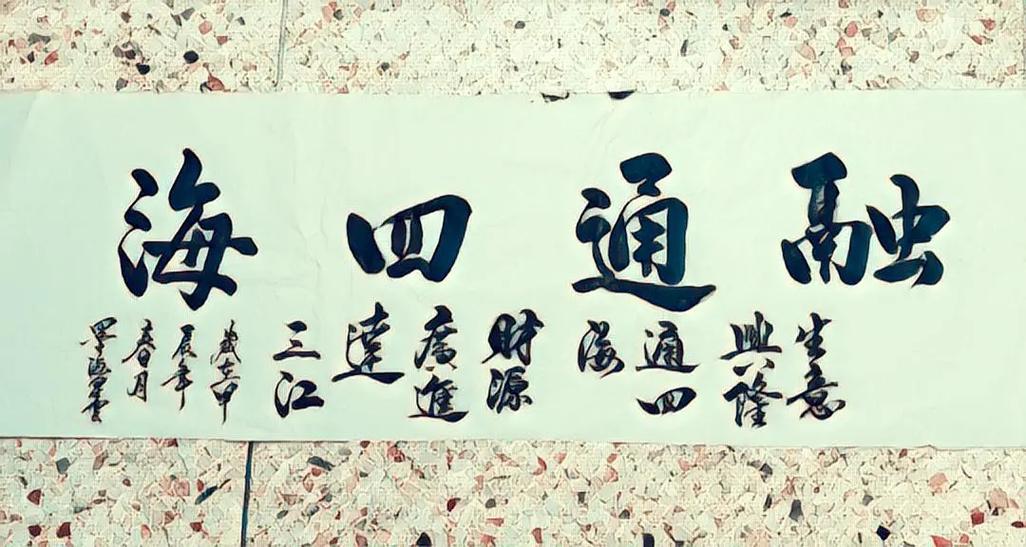 融通四海
生意
興隆
通四
海
財源
廣進
達
三江
歲在甲
辰年
春月